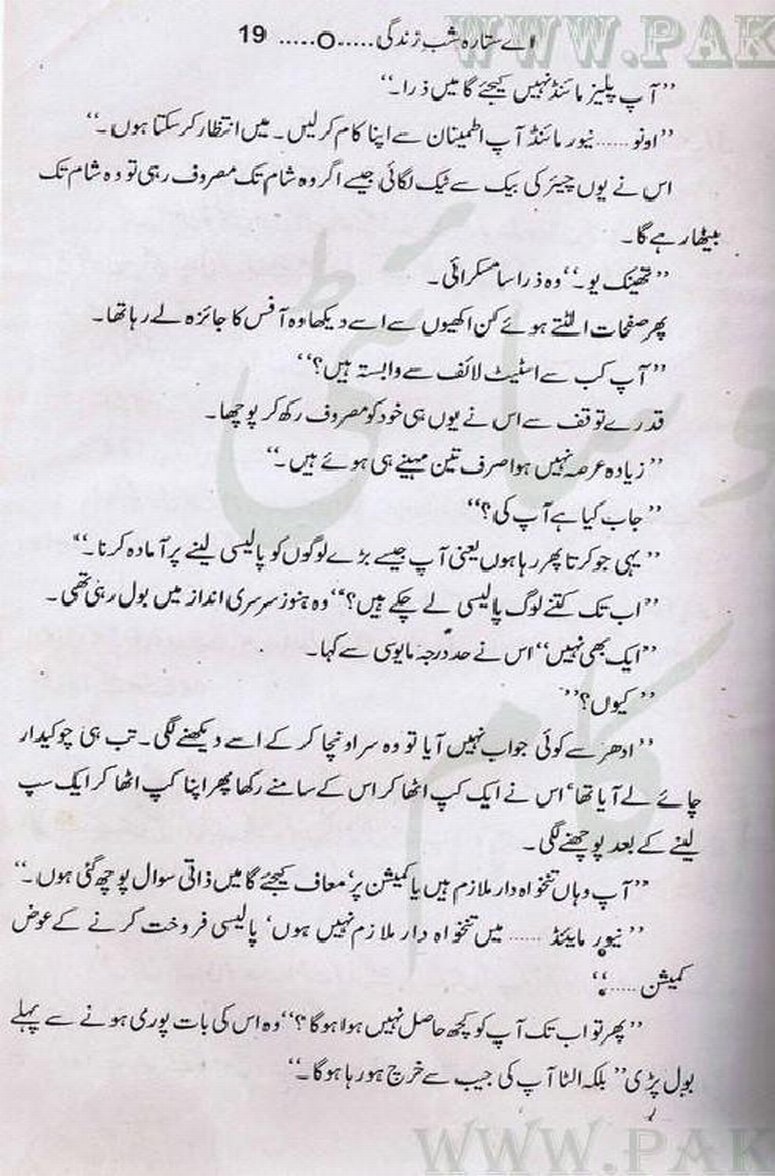 WWW.PAK
اے ستارہ شب زندگی.....O..... 19
”آپ پلیز مائنڈ نہیں کیجئے گا میں ذرا۔“
”اونو...... نیور مائنڈ آپ اطمینان سے اپنا کام کرلیں۔ میں انتظار کر سکتا ہوں۔“
اس نے یوں چیئر کی بیک سے ٹیک لگائی جیسے اگر وہ شام تک مصروف رہی تو وہ شام تک
بیٹھا رہے گا۔
”تھینک یو۔“ وہ ذرا سا مسکرائی۔
پھر صفحات الٹتے ہوئے کن اکھیوں سے اسے دیکھا وہ آفس کا جائزہ لے رہا تھا۔
”آپ کب سے اسٹیٹ لائف سے وابستہ ہیں؟“
قدرے توقف سے اس نے یوں ہی خود کو مصروف رکھ کر پوچھا۔
”زیادہ عرصہ نہیں ہوا صرف تین مہینے ہی ہوئے ہیں۔“
”جاب کیا ہے آپ کی؟“
”یہی جو کرتا پھر رہا ہوں یعنی آپ جیسے بڑے لوگوں کو پالیسی لینے پر آمادہ کرنا۔“
”اب تک کتنے لوگ پالیسی لے چکے ہیں؟“ وہ ہنوز سرسری انداز میں بول رہی تھی۔
”ایک بھی نہیں“ اس نے حد درجہ مایوسی سے کہا۔
”کیوں؟“
”ادھر سے کوئی جواب نہیں آیا تو وہ سر اونچا کر کے اسے دیکھنے لگی۔ تب ہی چوکیدار
چائے لے آیا تھا‘ اس نے ایک کپ اٹھا کر اس کے سامنے رکھا پھر اپنا کپ اٹھا کر ایک سپ
لینے کے بعد پوچھنے لگی۔
”آپ وہاں تنخواہ دار ملازم ہیں یا کمیشن پر‘ معاف کیجئے گا میں ذاتی سوال پوچھ گئی ہوں۔“
”نیور مایئنڈ ...... میں تنخواہ دار ملازم نہیں ہوں‘ پالیسی فروخت کرنے کے عوض
کمیشن.....“
”پھر تو اب تک آپ کو کچھ حاصل نہیں ہولا ہوگا؟“ وہ اس کی بات پوری ہونے سے پہلے
بول پڑی ”بلکہ الٹا آپ کی جیب سے خرچ ہو رہا ہوگا۔“
WWW.PAK